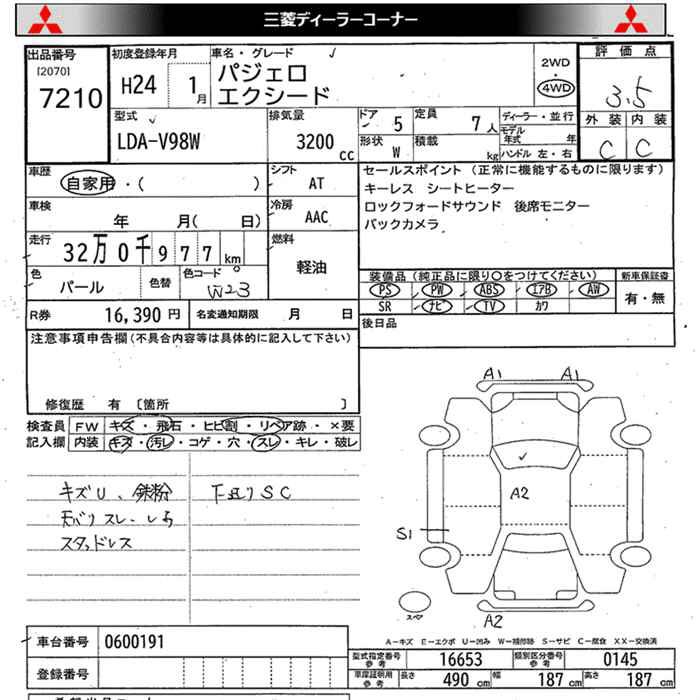 三菱ディーラーコーナー
出品番号
[2070]
7210
初度登録年月
H24 1月
車名・グレード
パジェロ
エクシード
2WD
4WD
評価点
3.5
外装 内装
C C
型式
LDA-V98W
排気量
3200 cc
ドア 5
形状 W
定員 7人
積載 kg
ディーラー・並行
モデル年式 年
ハンドル 左・右
車歴
自家用・( )
シフト
AT
車検
年 月( 日)
冷房
AAC
走行
32万0千977km
燃料
軽油
色
パール
色替
色コード
W23
R券 16,390円
名変通知期限 月 日
セールスポイント (正常に機能するものに限ります)
キーレス シートヒーター
ロックフォードサウンド 後席モニター
バックカメラ
装備品(純正品に限り○をつけてください)
新車保証書
PS PW ABS エアB AW
SR ナビ TV カワ
有・無
後日品
注意事項申告欄(不具合内容等は具体的に記入して下さい)
修復歴 有 [箇所 ]
検査員
記入欄
FW キズ・飛石・ヒビ割・リペア跡・×要
内装 キズ・汚レ・コゲ・穴・スレ・キレ・破レ
キズU、鉄粉
下廻りSC
スタッドレス
A1 A1
A2
S1
スペア
A2
A−キズ E−エクボ U−凹み W−補修跡 S−サビ C−腐食 XX−交換済
車台番号 0600191
登録番号
型式指定番号
参考
16653
類別区分番号
参考
0145
車庫証明用
参考
長さ 490cm 幅 187cm 高さ 187cm